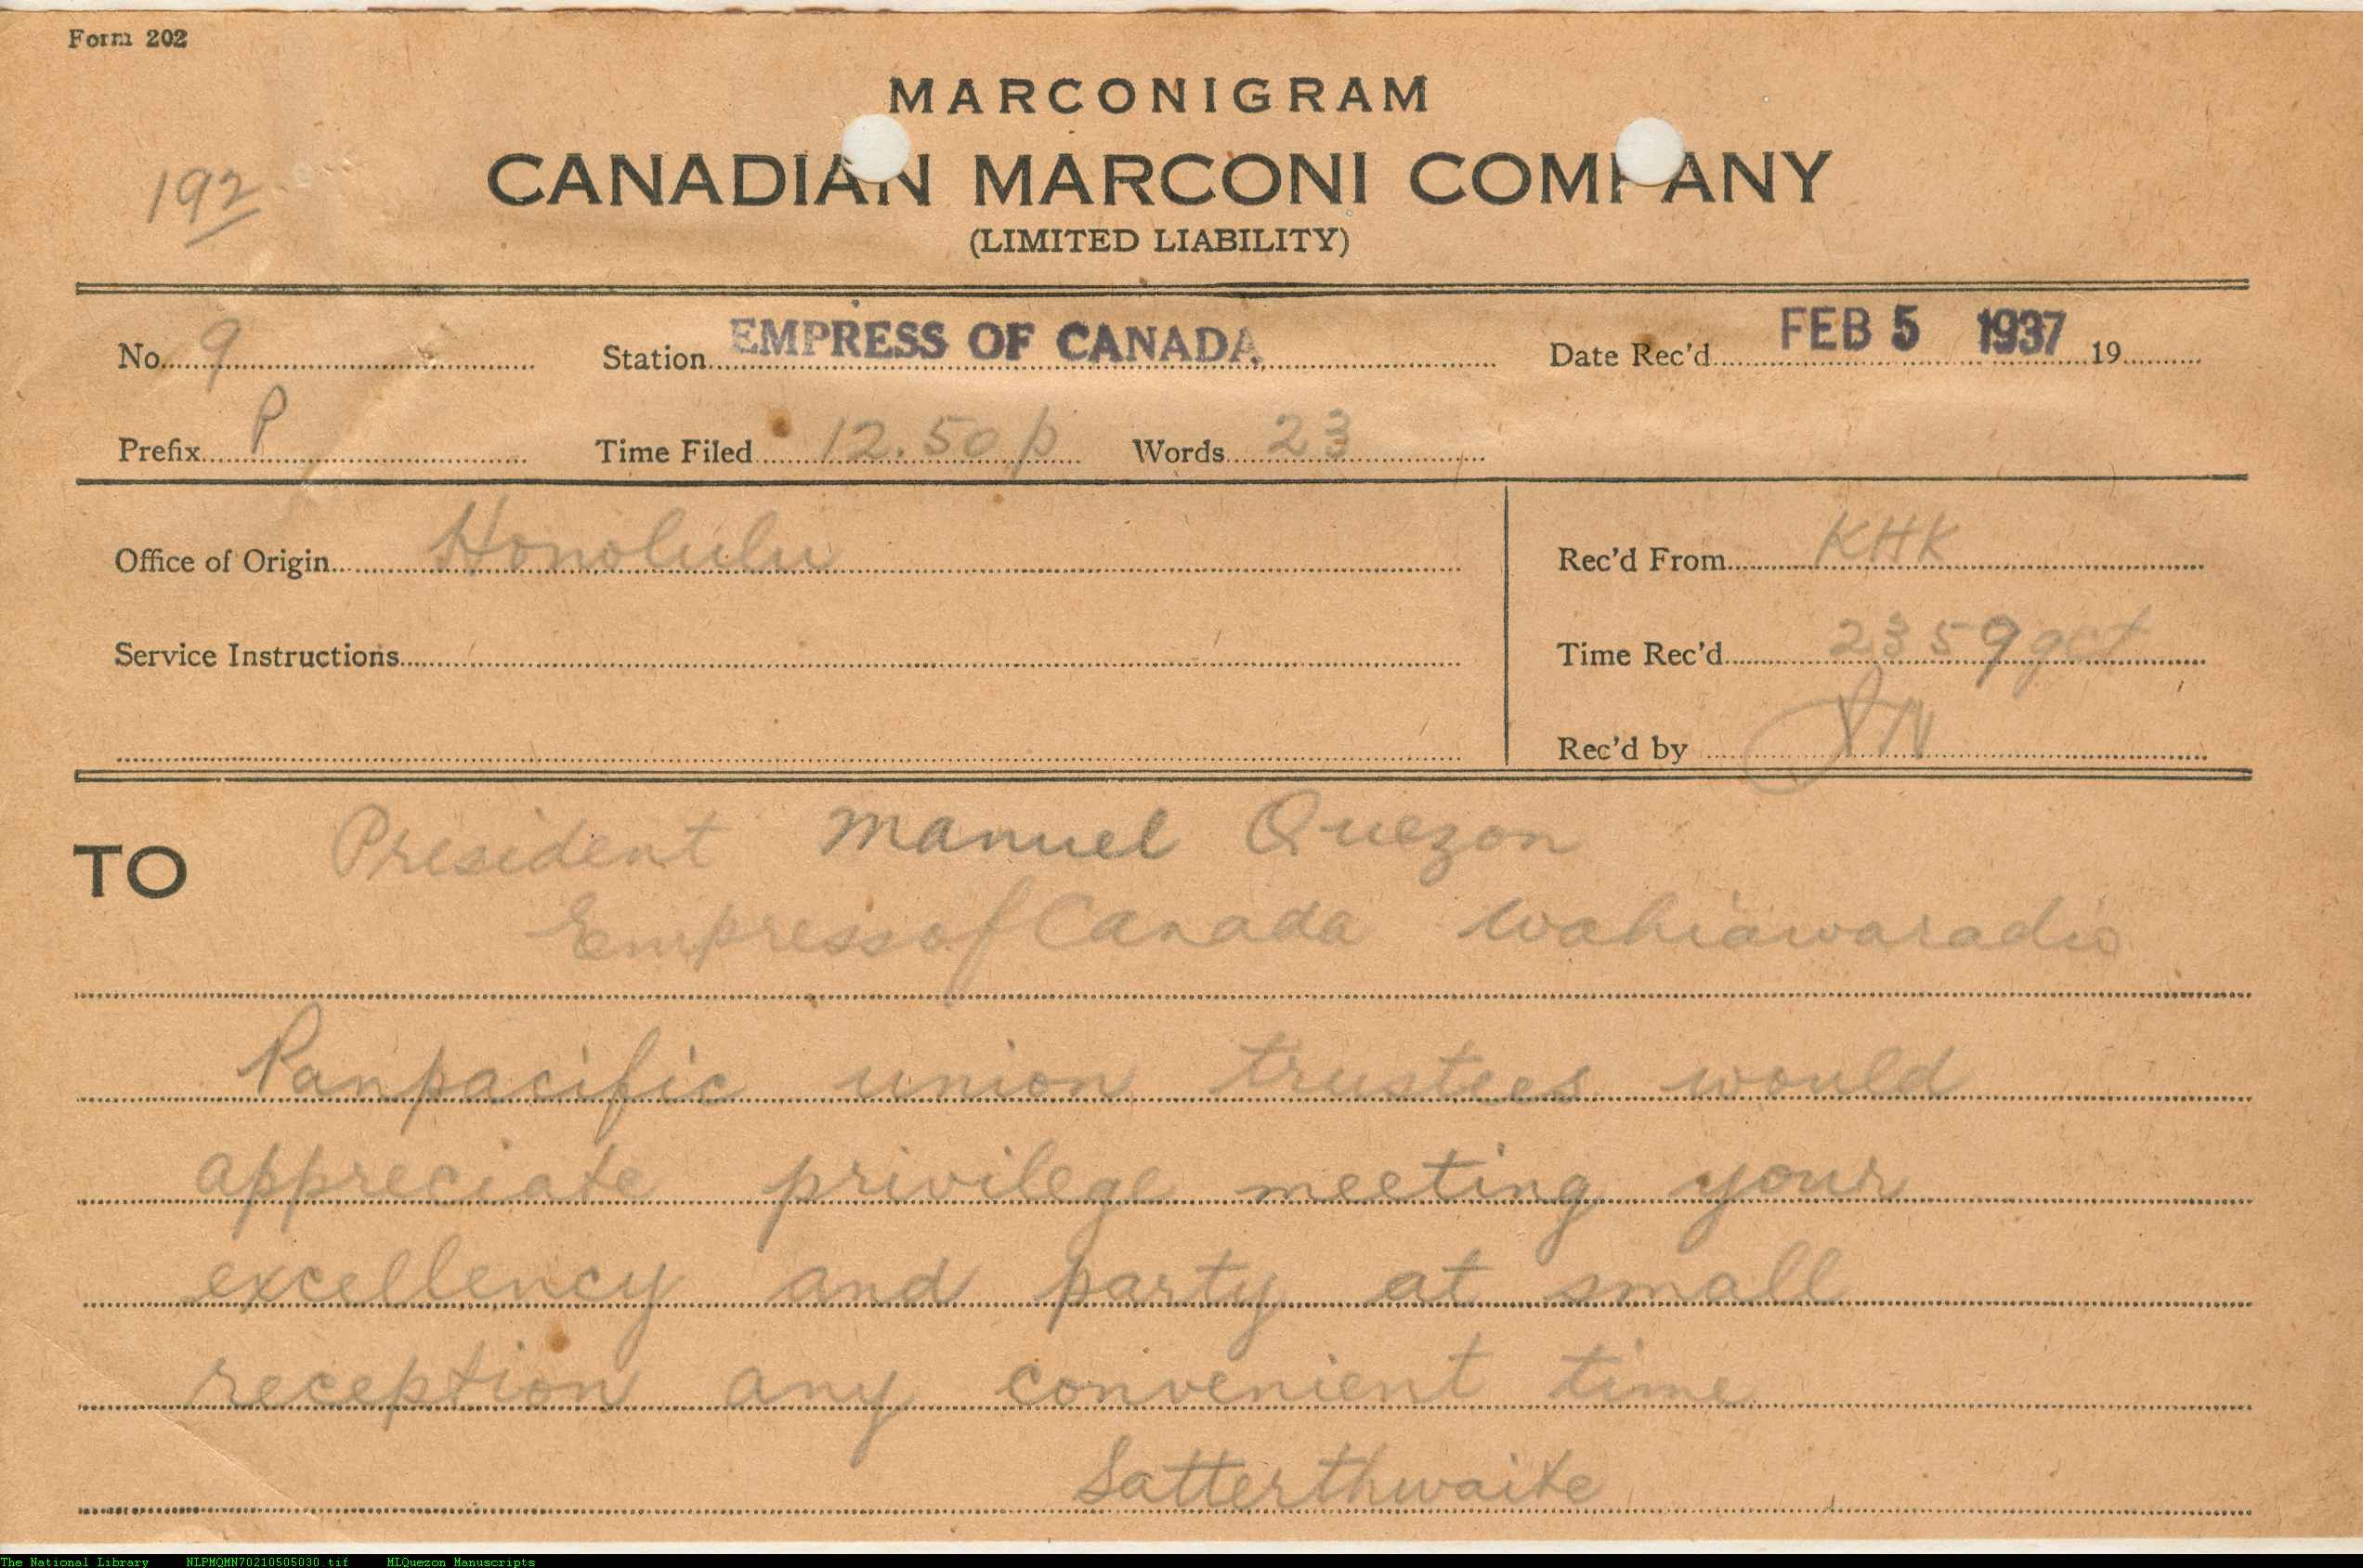 Form 202
MARCONIGRAM
192
CANADIAN MARCONI COMPANY
(LIMITED LIABILITY)
No. 9 Station EMPRESS OF CANADA Date Rec'd FEB 5 1937 19
Prefix P Time Filed 12.50p Words 23
Office of Origin Honolulu Rec'd From KHK
Service Instructions Time Rec'd 2359 gct
Rec'd by
TO President Manuel Quezon
EmpressofCanada wahiawaradio
Panpacific union trustees would
appreciate privilege meeting your
excellency and party at small
reception any convenient time
Satterthwaite
The National Library NLPMQMN70210505030.tif MLQuezon Manuscripts